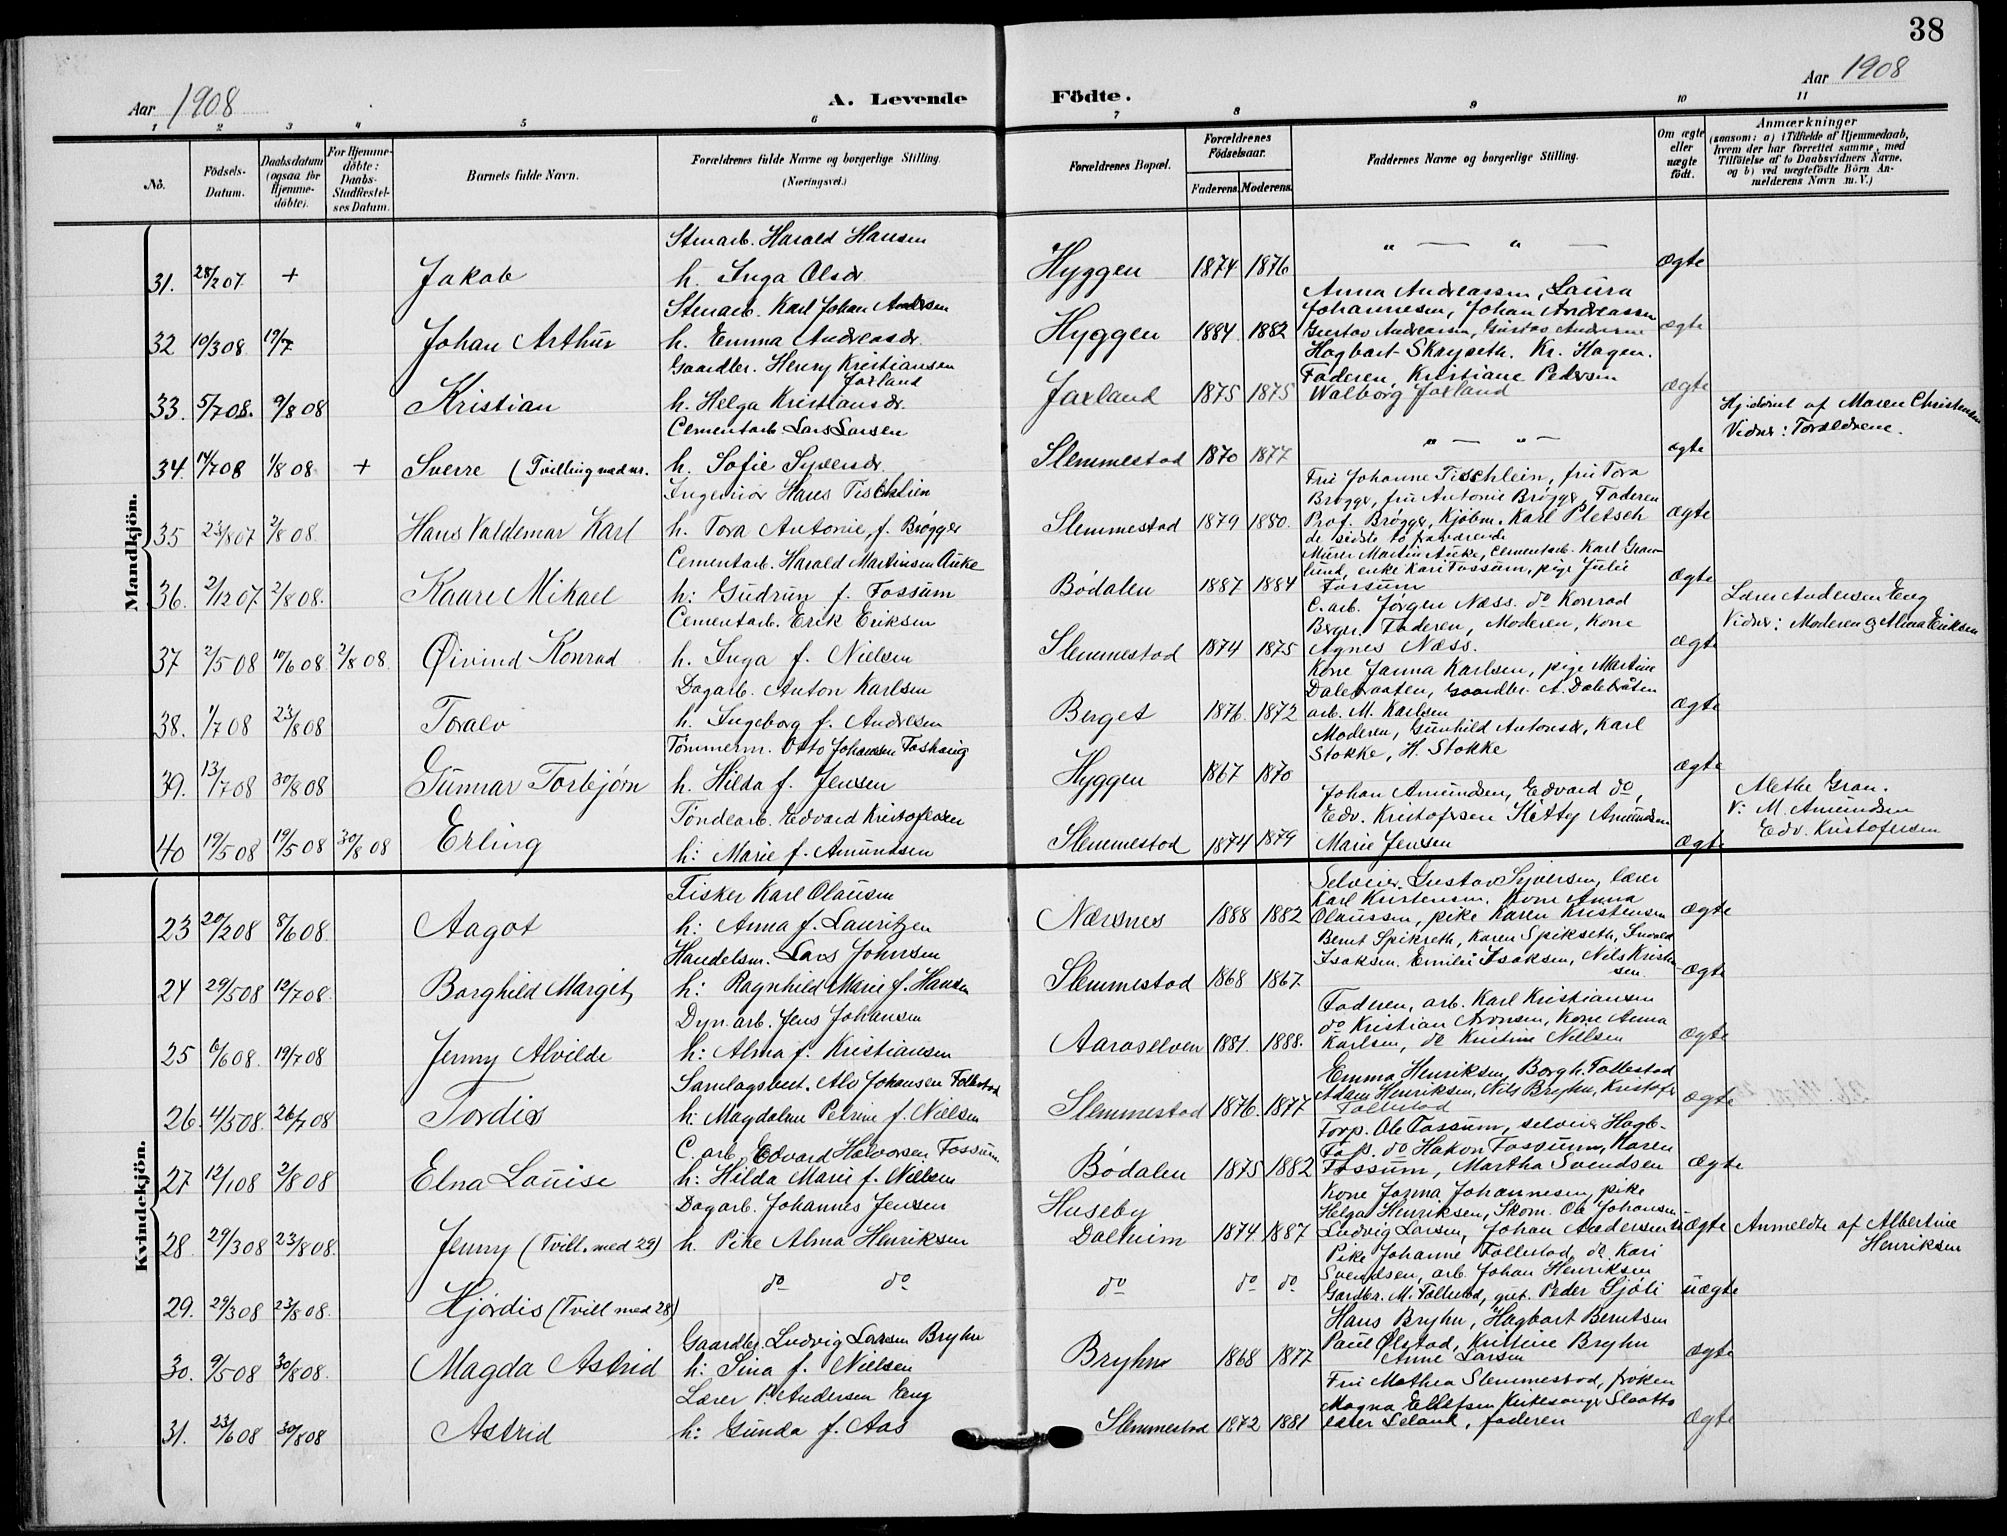 38
Aar 1908
A. Levende Födte.
Aar 1908
1 2 3 4 5 6 7 8 9 10 11
No.
Födsels-Datum.
Daabsdatum (ogsaa for Hjemme-döbte).
For Hjemme-döbte: Daabs-Stadfæstel-ses Datum.
Barnets fulde Navn.
Forældrenes fulde Navne og borgerlige Stilling. (Næringsvei.)
Forældrenes Bopæl.
Forældrenes Födselsaar.
Faderens. Moderens.
Faddernes Navne og borgerlige Stilling.
Om ægte eller uægte födt.
Anmærkninger
(saasom: a) i Tilfælde af Hjemmedaab, hvem der har forrettet samme, med Tilföielse af to Daabsvidners Navne, og b) ved uægtefödte Börn An-melderens Navn m. V.)
Mandkjön.
Stenarb. Harald Hansen
31. 28/2 07. + Jakob h. Inga Olsdr. Hyggen 1874 1876 " — " — Ægte
Stenarb. Karl Johan Andersen
Anna Andreassen, Laura
Johannesen, Johan Andreassen
32 10/3 08 19/7 Johan Arthur h. Emma Andreasdr. Hyggen 1884. 1882 Gustav Andreassen, Gustav Andersen Ægte
Gaardbr. Henry Kristiansen Jaxland
Hagbart Skryseth. Kr. Hagen.
Faderen, Kristiane Pedersen
33. 5/7 08. 9/8 08 Kristian h. Helga Kristiansdr. Jaxland 1875 1875 Walborg Jaxland Ægte
Cementarb. Lars Larsen
Hj.döbt af Maren Christensen
Vidner: Forældrene.
34. 14/7 08 1/8 08 + Sverre (Tvilling med nr. h. Sofie Syversdr. Slemmestad 1870 1877 " — " — ægte
Ingeniör Hans Tischlein
Fru Johanne Tischlein, fru Tora
Brøgger, fru Antonie Brøgger, Faderen
35 23/8 07 2/8 08. Hans Valdemar Karl h. Tora Antonie, f. Brøgger Slemmestad 1879 1880. Prof. Brøgger, Kjöbm. Karl Pletsch Ægte
de sidste to fraværende
Cementarb. Harald Martinsen Auke
Murer Martin Auke, Cementarb. Karl Gran-
lund, enke Kari Fossum, pige Julie
36. 2/12 07. 2/8 08. Kaare Mikael h: Gudrun f. Fossum Bödalen 1887 1884 Fossum Ægte
Cementarb. Erik Eriksen
C. arb. Jörgen Næss. do Konrad
Berger. Faderen, Moderen, Kone
Lærer Andersen Eng
Vidner: Moderen og Alma Eriksen
37 2/5 08 10/6 08 2/8 08. Øivind Konrad h. Inga f. Nielsen Slemmestad 1874 1875 Agnes Næss. Ægte
Dagarb. Anton Karlsen
Kone Janna Karlsen, pige Martine
Dalebraaten, Gaardbr. A. Dalebråten
38. 1/7 08 23/8 08 Toralv h. Ingeborg f. Andresen Berget 1876. 1872 arb. M. Karlsen Ægte
Tömmerm. Otto Johansen Foshaug
Moderen, Gunhild Antonsdr, Karl
Stokke, H. Stokke
39. 13/7 08 30/8 08 Gunnar Torbjørn h. Hilda f. Jensen Hyggen 1867 1870 Ægte
Töndearb. Edvard Kristofersen
Johan Amundsen, Edvard do,
Edv. Kristofersen Kitty Amundsen
Alethe Gran.
V: M. Amundsen
Edv. Kristofersen
40 19/5 08 19/5 08 30/8 08 Erling h: Marie f. Amundsen Slemmestad 1874 1879 Marie Jensen Ægte
Kvindekjön.
Fisker Karl Olausen
Selveier Gustav Syversen, lærer
Karl Kristensen. Kone Anna
23 20/2 08 8/6 08. Aagot h: Anna f. Lauritzen Nærsnes 1888 1882 Olaussen, pike Karen Kristensen Ægte
Handelsm. Lars Johnsen
Bernt Spikseth, Karen Spikseth, Invald
Isaksen. Emilie Isaksen, Nils Kristen-
sen
24 29/5 08 12/7 08. Borghild Margit h: Ragnhild Marie f. Hansen Slemmestad 1868 1867. Ægte
Dyn. arb. Jens Johansen
Faderen, arb. Karl Kristiansen
do Kristian Aronsen, Kone Anna
25 10/6 08. 19/7 08 Jenny Alvilde h: Alma f. Kristiansen Aaroselven 1881. 1888. Karlsen, do Kristine Nilsen Ægte
Samlagsbest. Alv Johansen Follestad
Emma Henriksen, Borgh. Follestad
Adam Henriksen, Nils Bryhn, Kristofer
26. 4/5 08. 26/7 08 Tordis h: Magdalene Petrine f. Nielsen Slemmestad 1876. 1877 Follestad Ægte
C. arb. Edvard Halvorsen Fossum
Forp. Ole Fossum, selveier Hagb-
Foss. do Hakon Fossum, Karen
27 12/1 08 2/8 08 Elna Louise h: Hilda Marie f. Nielsen Bödalen 1875 1882 Fossum, Martha Svendsen Ægte
Dagarb. Johannes Jensen
Huseby
Kone Janna Johannesen, pike
Helga Henriksen, Skom. Ole Johansen
28. 29/3 08 23/8 08. Jenny (Tvill. med 29) h. Pike Alma Henriksen Dalheim 1874 1887 Ludvig Larsen, Johan Andersen uægte Anmeldte af Albertine Henriksen
Pike Johanne Follestad, do Kari
Svendsen, arb. Johan Henriksen
29. 29/3 08 23/8 08. Hjördis (Tvill med 28) do do do do do Gardbr. M. Follestad, gut. Peder Sjöli uægte
Gaardbr. Ludvig Larsen Bryhn
Hans Bryhn, Hagbart Berntsen
Paul Ølstad, Kristine Bryhn
30. 9/5 08 30/8 08. Magda Astrid h: Sina f. Nielsen Bryhn 1868 1877 Anne Larsen Ægte
Lærer P. Andersen Eng
Fru Mathea Slemmestad, fröken
Magna Ellefsen Kirkesanger Slaatto
31. 23/6 08 30/8 08 Astrid h: Gunda f. Aas Slemmestad 1872 1881 lærer Leland, faderen Ægte